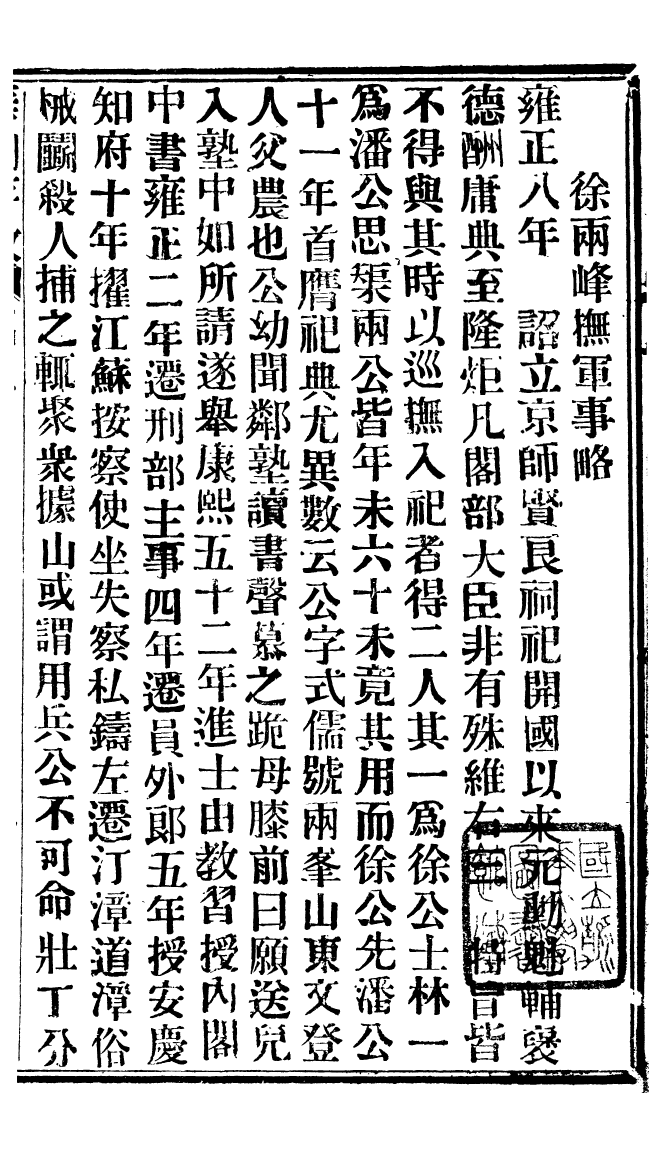 徐兩峰撫軍事略
雍正八年　詔立京師賢良祠祀開國以來元勳魁輔褒
德酬庸典至隆炬凡閣部大臣非有殊維右　特旨皆
不得與其時以巡撫入祀者得二人其一爲徐公士林一
爲潘公思榘兩公皆年未六十未竟其用而徐公先潘公
十一年首膺祀典尤異數云公字式儒號兩峯山東文登
人父農也公幼聞鄰塾讀書聲慕之跪母膝前曰願送兒
入塾中如所請遂舉康熙五十二年進士由教習授內閣
中書雍正二年遷刑部主事四年遷員外郎五年授安慶
知府十年擢江蘇按察使坐失察私鑄左遷汀漳道漳俗
械鬭殺人捕之輒聚衆據山或謂用兵公不可命壯丁分